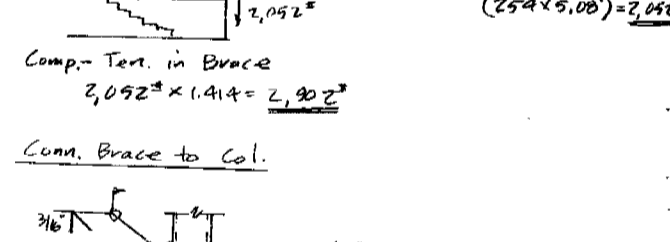 2,052#
(254 x 5.08') = 2,052
Comp.- Ten. in Brace
2,052# x 1.414 = 2,902#
Conn. Brace to Col.
3/16"